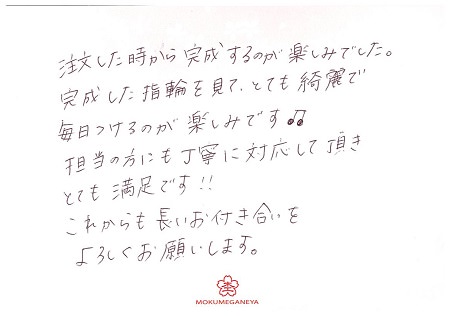 注文した時から完成するのが楽しみでした。
完成した指輪を見て、とても綺麗で
毎日つけるのが楽しみです♫
担当の方にも丁寧に対応して頂き
とても満足です!!
これからも長いお付き合いを
よろしくお願いします。
MOKUMEGANEYA